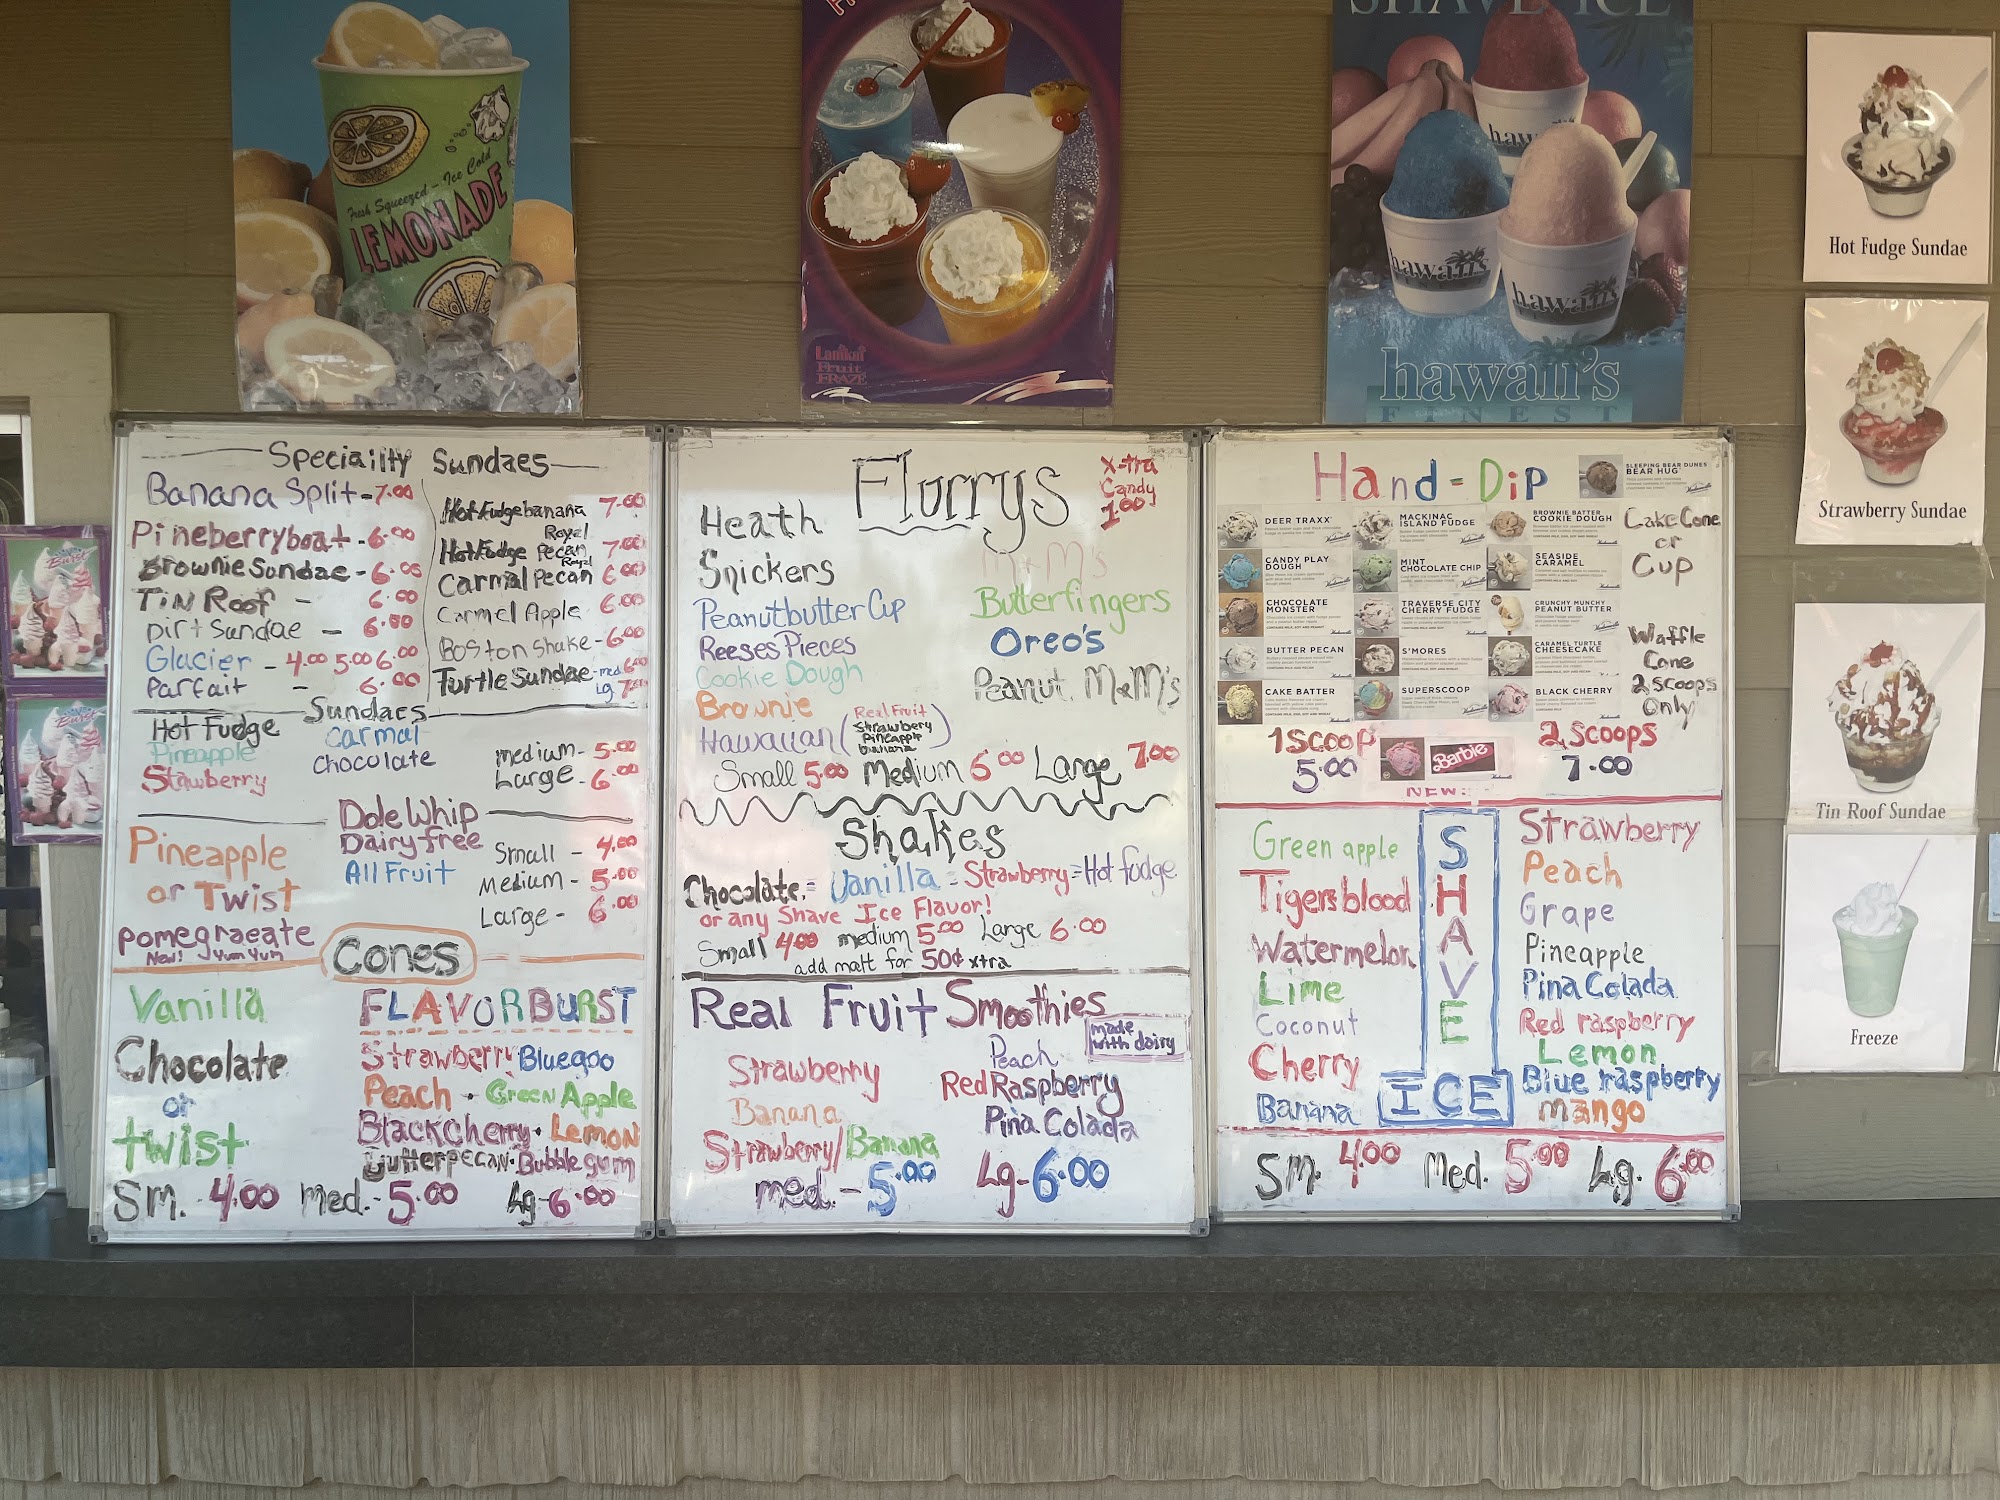 Fresh Squeezed - Ice Cold
LEMONADE
Lanikai
Fruit
FRAZE
SHAVE ICE
hawaii's
hawaii's
hawaii's
FINEST
Hot Fudge Sundae
Strawberry Sundae
Tin Roof Sundae
Freeze
Burst
Burst
Speciailty Sundaes
Banana Split - 7.00
Pineberryboat - 6.00
Brownie Sundae - 6.00
Tin Roof - 6.00
Dirt Sundae - 6.00
Glacier - 4.00 5.00 6.00
Parfait - 6.00
Hot Fudge banana Royal 7.00
Hot Fudge Pecan Royal 7.00
Carmal Pecan 6.00
Carmel Apple 6.00
Boston Shake - 6.00
Turtle Sundae - med 6.00
Lg. 7.00
Sundaes
Hot Fudge
Pineapple
Stawberry
Carmal
Chocolate
medium - 5.00
Large - 6.00
Dole Whip
Dairy free
All Fruit
Pineapple
or Twist
pomegraeate
New! Yum Yum
Small - 4.00
Medium - 5.00
Large - 6.00
Cones
Vanilla
Chocolate
or
twist
FLAVORBURST
Strawberry Bluegoo
Peach - Green Apple
Blackcherry - Lemon
Butterpecan - Bubblegum
Sm. 4.00 med. - 5.00 Lg - 6.00
Flurrys
X-tra
Candy
1.00
Heath
Snickers
Peanutbutter Cup
Reeses Pieces
Cookie Dough
Brownie
Hawaiian (Real Fruit
Strawbery
Pineapple
banana)
M&M's
Butterfingers
Oreo's
Peanut M&M's
Small 5.00 Medium 6.00 Large 7.00
Shakes
Chocolate = Vanilla = Strawberry = Hot fudge
or any Shave Ice Flavor!
Small 4.00 medium 5.00 Large 6.00
add malt for 50¢ xtra
Real Fruit Smoothies
made
with dairy
Strawberry
Banana
Strawberry/Banana
Peach
Red Raspberry
Pina Colada
med. - 5.00 Lg - 6.00
Hand-Dip
SLEEPING BEAR DUNES
BEAR HUG
DEER TRAXX
MACKINAC
ISLAND FUDGE
BROWNIE BATTER
COOKIE DOUGH
CANDY PLAY
DOUGH
MINT
CHOCOLATE CHIP
SEASIDE
CARAMEL
CHOCOLATE
MONSTER
TRAVERSE CITY
CHERRY FUDGE
CRUNCHY MUNCHY
PEANUT BUTTER
BUTTER PECAN
S'MORES
CARAMEL TURTLE
CHEESECAKE
CAKE BATTER
SUPERSCOOP
BLACK CHERRY
Cake Cone
or
Cup
Waffle
Cone
2 Scoops
Only
1 Scoop
5.00
Barbie
NEW!
2 Scoops
7.00
SHAVE
ICE
Green apple
Tigers blood
Watermelon
Lime
Coconut
Cherry
Banana
Strawberry
Peach
Grape
Pineapple
Pina Colada
Red raspberry
Lemon
Blue raspberry
mango
Sm. 4.00 Med. 5.00 Lg. 6.00